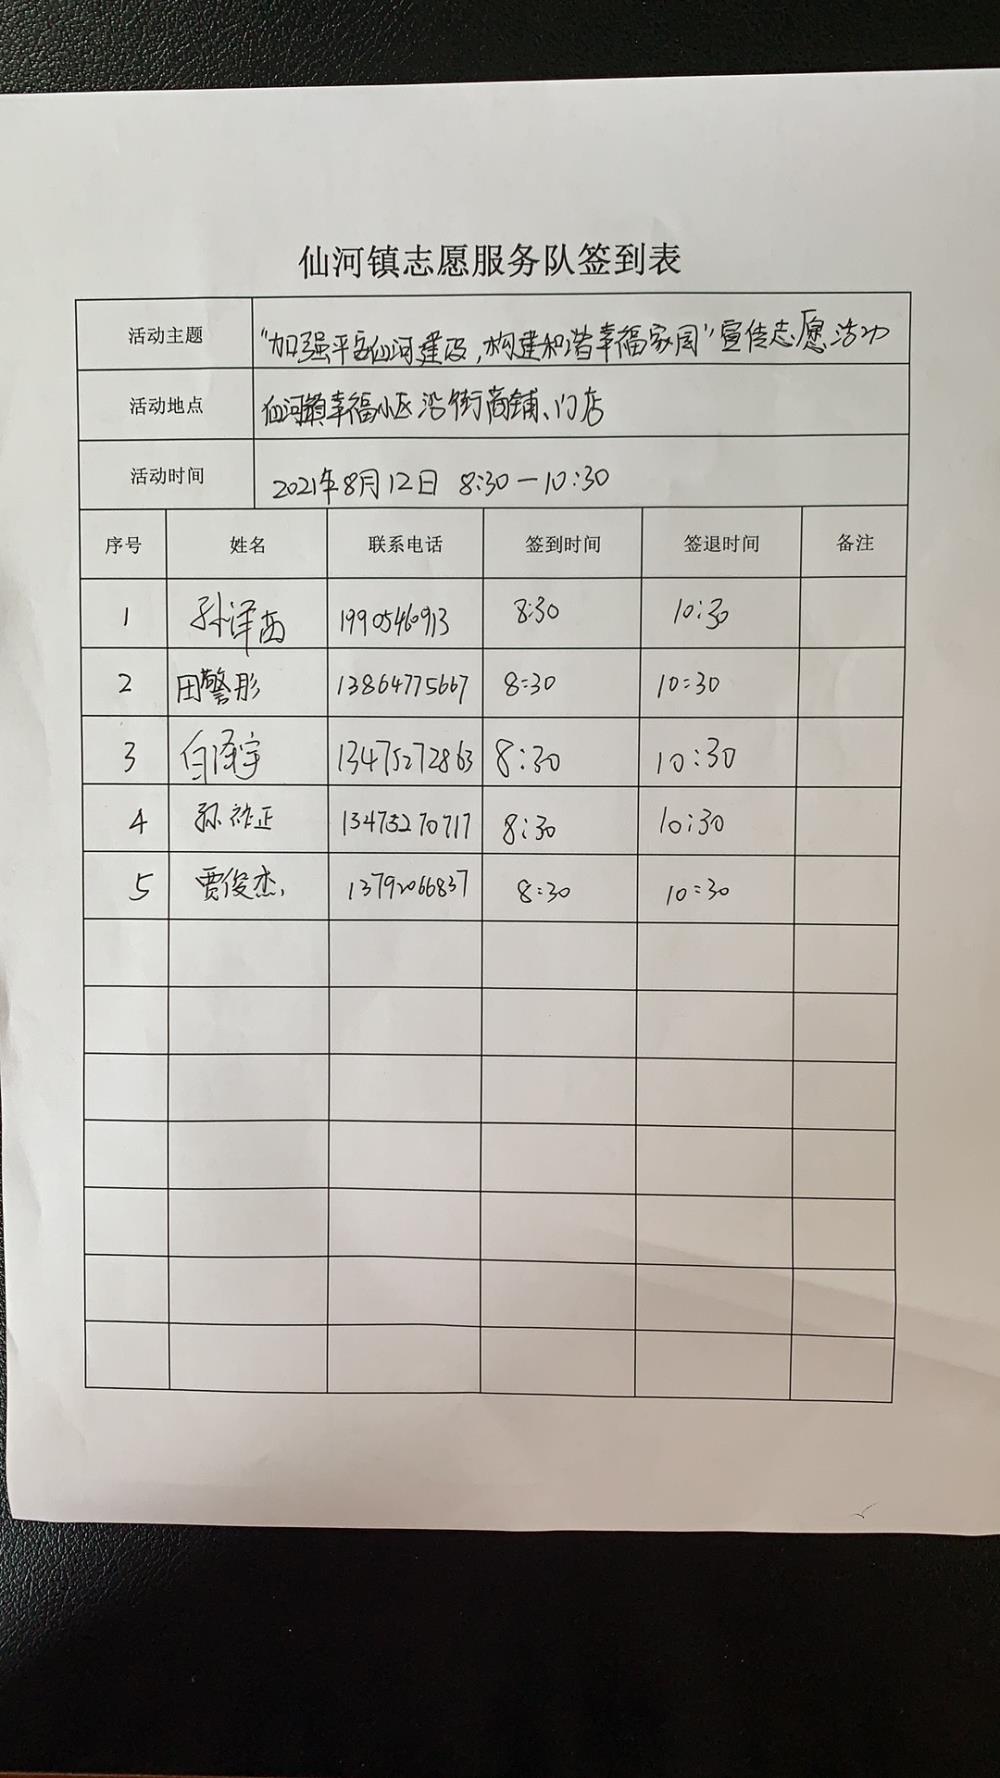 仙河镇志愿服务队签到表
活动主题 "加强平安仙河建设,构建和谐幸福家园"宣传志愿活动
活动地点 仙河镇幸福小区沿街商铺、门店
活动时间 2021年8月12日 8:30—10:30
序号 姓名 联系电话 签到时间 签退时间 备注
1 孙泽西 19905460913 8:30 10:30
2 田警彤 13864775667 8:30 10:30
3 白泽宇 13475272863 8:30 10:30
4 孙祚正 13473270717 8:30 10:30
5 贾俊杰 13792066837 8:30 10:30